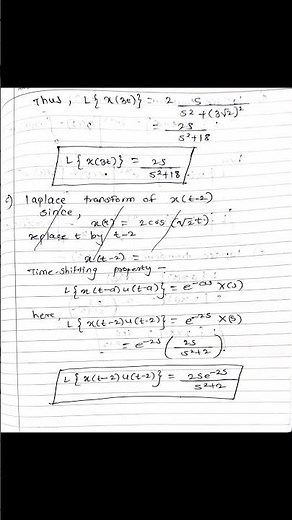 Thus, L{x(3t)} = 2 s / (s² + (3√2)²)
= 2s / (s²+18)
L{x(3t)} = 2s / (s²+18)
Laplace transform of x(t-2)
since,
x(t) = 2cos(√2t)
replace t by t-2
x(t-2) =
Time-shifting property -
L{x(t-a)u(t-a)} = e^-as X(s)
here,
L{x(t-2)u(t-2)} = e^-2s X(s)
= e^-2s (2s / (s²+2))
L{x(t-2)u(t-2)} = 2se^-2s / (s²+2)